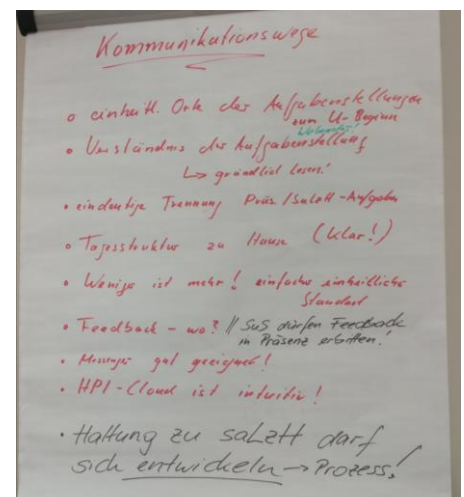 Kommunikationswege
o einheitl. Orte der Aufgabenstellungen
zum U-Beginn
• Verständnis der Aufgabenstellung
↳ gründlich lesen!
• eindeutige Trennung Präs./SaLzH-Aufgaben
• Tagesstruktur zu Hause (klar!)
• Wenige ist mehr! einfacher einheitlicher
Standard
• Feedback – wo? // SuS dürfen Feedback
in Präsenz erbitten!
• Messenger gut geeignet!
• HPI-Cloud ist intuitiv!
• Haltung zu saLzH darf
sich entwickeln → Prozess!